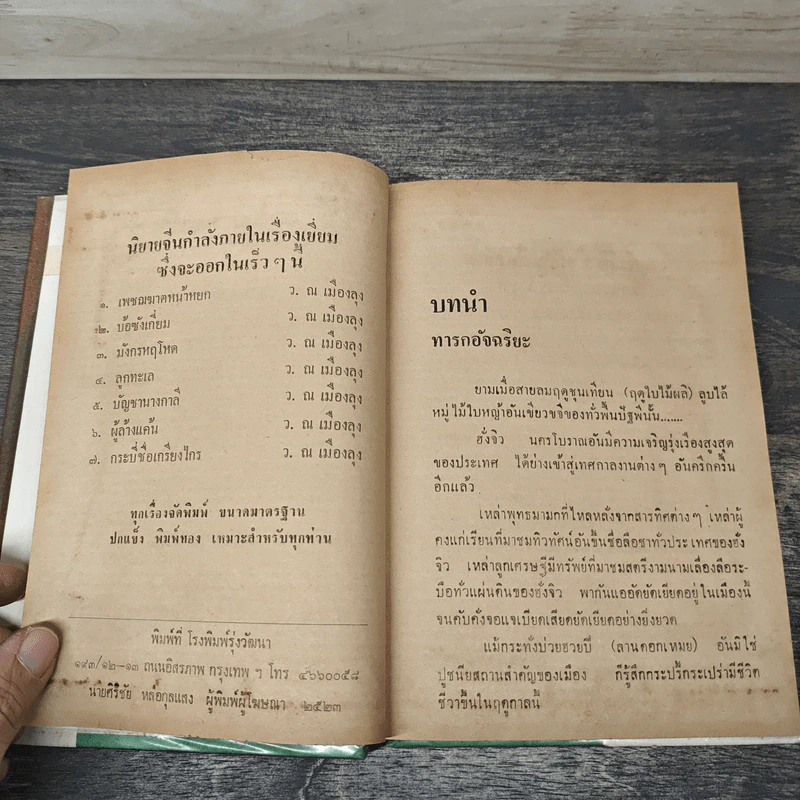 นิยายจีนกำลังภายในเรื่องเยี่ยม
ซึ่งจะออกในเร็ว ๆ นี้
๑. เพชฌฆาตหน้าหยก ว. ณ เมืองลุง
๒. บ้อซังเกี่ยม ว. ณ เมืองลุง
๓. มังกรหฤโหด ว. ณ เมืองลุง
๔. ลูกทะเล ว. ณ เมืองลุง
๕. บัญชานางกาลี ว. ณ เมืองลุง
๖. ผู้ล้างแค้น ว. ณ เมืองลุง
๗. กระบี่ชื่อเกรียงไกร ว. ณ เมืองลุง
ทุกเรื่องจัดพิมพ์ ขนาดมาตรฐาน
ปกแข็ง พิมพ์ทอง เหมาะสำหรับทุกท่าน
พิมพ์ที่ โรงพิมพ์รุ่งวัฒนา
๑๙๓/๑๒-๑๓ ถนนอิสรภาพ กรุงเทพ ฯ โทร ๔๖๖๐๐๕๘
นายศิริชัย หล่อกุลแสง ผู้พิมพ์ผู้โฆษณา ๒๕๒๓
บทนำ
ทารกอัจฉริยะ
ยามเมื่อสายลมฤดูชุนเทียน (ฤดูใบไม้ผลิ) ลูบไล้
หมู่ไม้ใบหญ้าอันเขียวขจีของทั่วพื้นปัฐพีนั้น.......
ฮั่งจิว นครโบราณอันมีความเจริญรุ่งเรืองสูงสุด
ของประเทศ ได้ย่างเข้าสู่เทศกาลงานต่าง ๆ อันครึกครื้น
อีกแล้ว
เหล่าพุทธมามกที่ไหลหลั่งจากสารทิศต่าง ๆ เหล่าผู้
คงแก่เรียนที่มาชมทิวทัศน์อันขึ้นชื่อลือชาทั่วประเทศของฮั่ง
จิว เหล่าลูกเศรษฐีมีทรัพย์ที่มาชมสตรีงามนามเลื่องลือระ-
บือทั่วแผ่นดินของฮั่งจิว พากันแออัดยัดเยียดอยู่ในเมืองนี้
จนคับคั่งจอแจเบียดเสียดยัดเยียดอย่างยิ่งยวด
แม้กระทั่งบ่วยฮวยบี (ลานดอกเหมย) อันมิใช่
ปูชนียสถานสำคัญของเมือง ก็รู้สึกกระปรี้กระเปร่ามีชีวิต
ชีวาขึ้นในฤดูกาลนี้